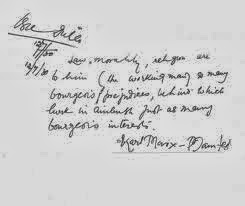 12/7/30
12/7/30 Law, morality, religion are
to him (the working man) so many
bourgeois prejudices, behind which
lurk in ambush just as many
bourgeois interests.
Karl Marx - Manifes